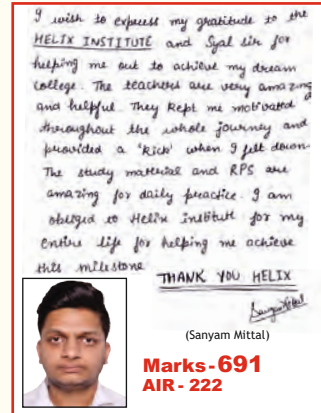 I wish to express my gratitude to the
HELIX INSTITUTE and Syal sir for
helping me out to achieve my dream
college. The teachers are very amazing
and helpful. They kept me motivated
throughout the whole journey and
provided a 'Kick' when I felt down.
The study material and RPS are
amazing for daily practice. I am
obliged to Helix institute for my
entire life for helping me achieve
this milestone
THANK YOU HELIX
Sanyam Mittal
(Sanyam Mittal)
Marks - 691
AIR - 222